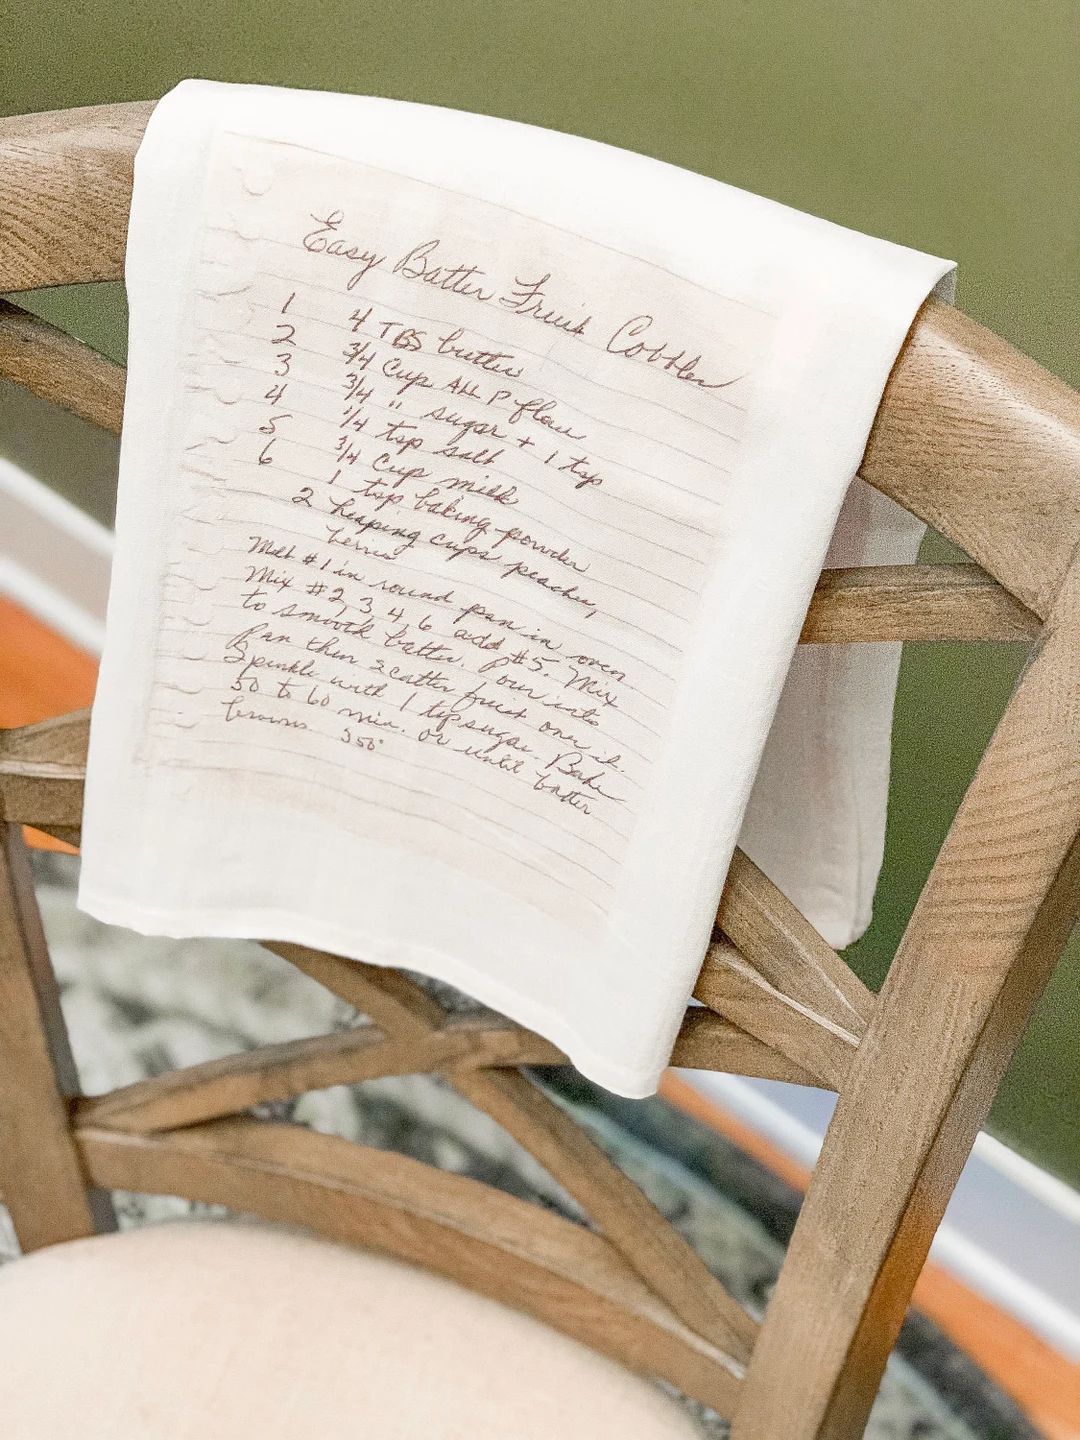 Easy Batter Fruit Cobbler
1 4 TBS butter
2 3/4 Cup All P flour
3 3/4 " sugar + 1 tsp
4 1/4 tsp salt
5 3/4 Cup milk
6 1 tsp baking powder
2 heaping cups peaches,
berries
Melt #1 in round pan in oven.
Mix #2, 3 4 6 add #5. Mix
to smooth batter. Pour into
Pan then scatter fruit over it.
Sprinkle with 1 tsp sugar. Bake
50 to 60 min. or until batter
browns 350°